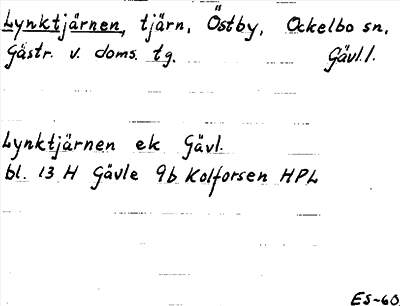 Lynktjärnen, tjärn, Östby, Ockelbo sn,
Gästr. v. doms. tg. Gävl. l.
Lynktjärnen ek Gävl.
bl. 13 H Gävle 9b Kolforsen HPL
ES-60